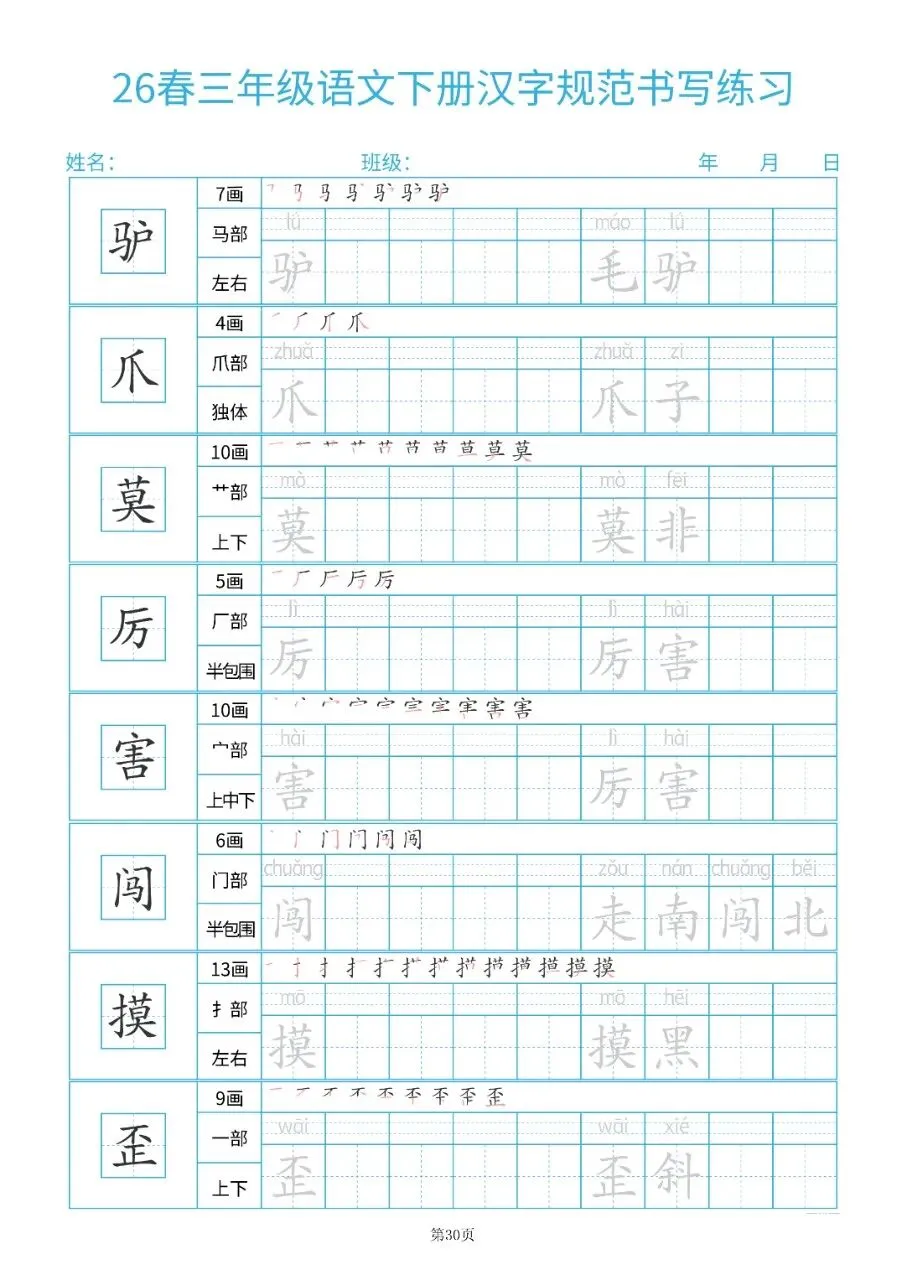 26春三年级语文下册汉字规范书写练习
姓名： 班级： 年 月 日
驴 7画
马部 lǘ máo lǘ
左右 驴 毛 驴
爪 4画
爪部 zhuǎ zhuǎ zi
独体 爪 爪 子
莫 10画
艹部 mò mò fēi
上下 莫 莫 非
厉 5画
厂部 lì lì hài
半包围 厉 厉 害
害 10画
宀部 hài lì hài
上中下 害 厉 害
闯 6画
门部 chuǎng zǒu nán chuǎng běi
半包围 闯 走 南 闯 北
摸 13画
扌部 mō mō hēi
左右 摸 摸 黑
歪 9画
一部 wāi wāi xié
上下 歪 歪 斜
第30页